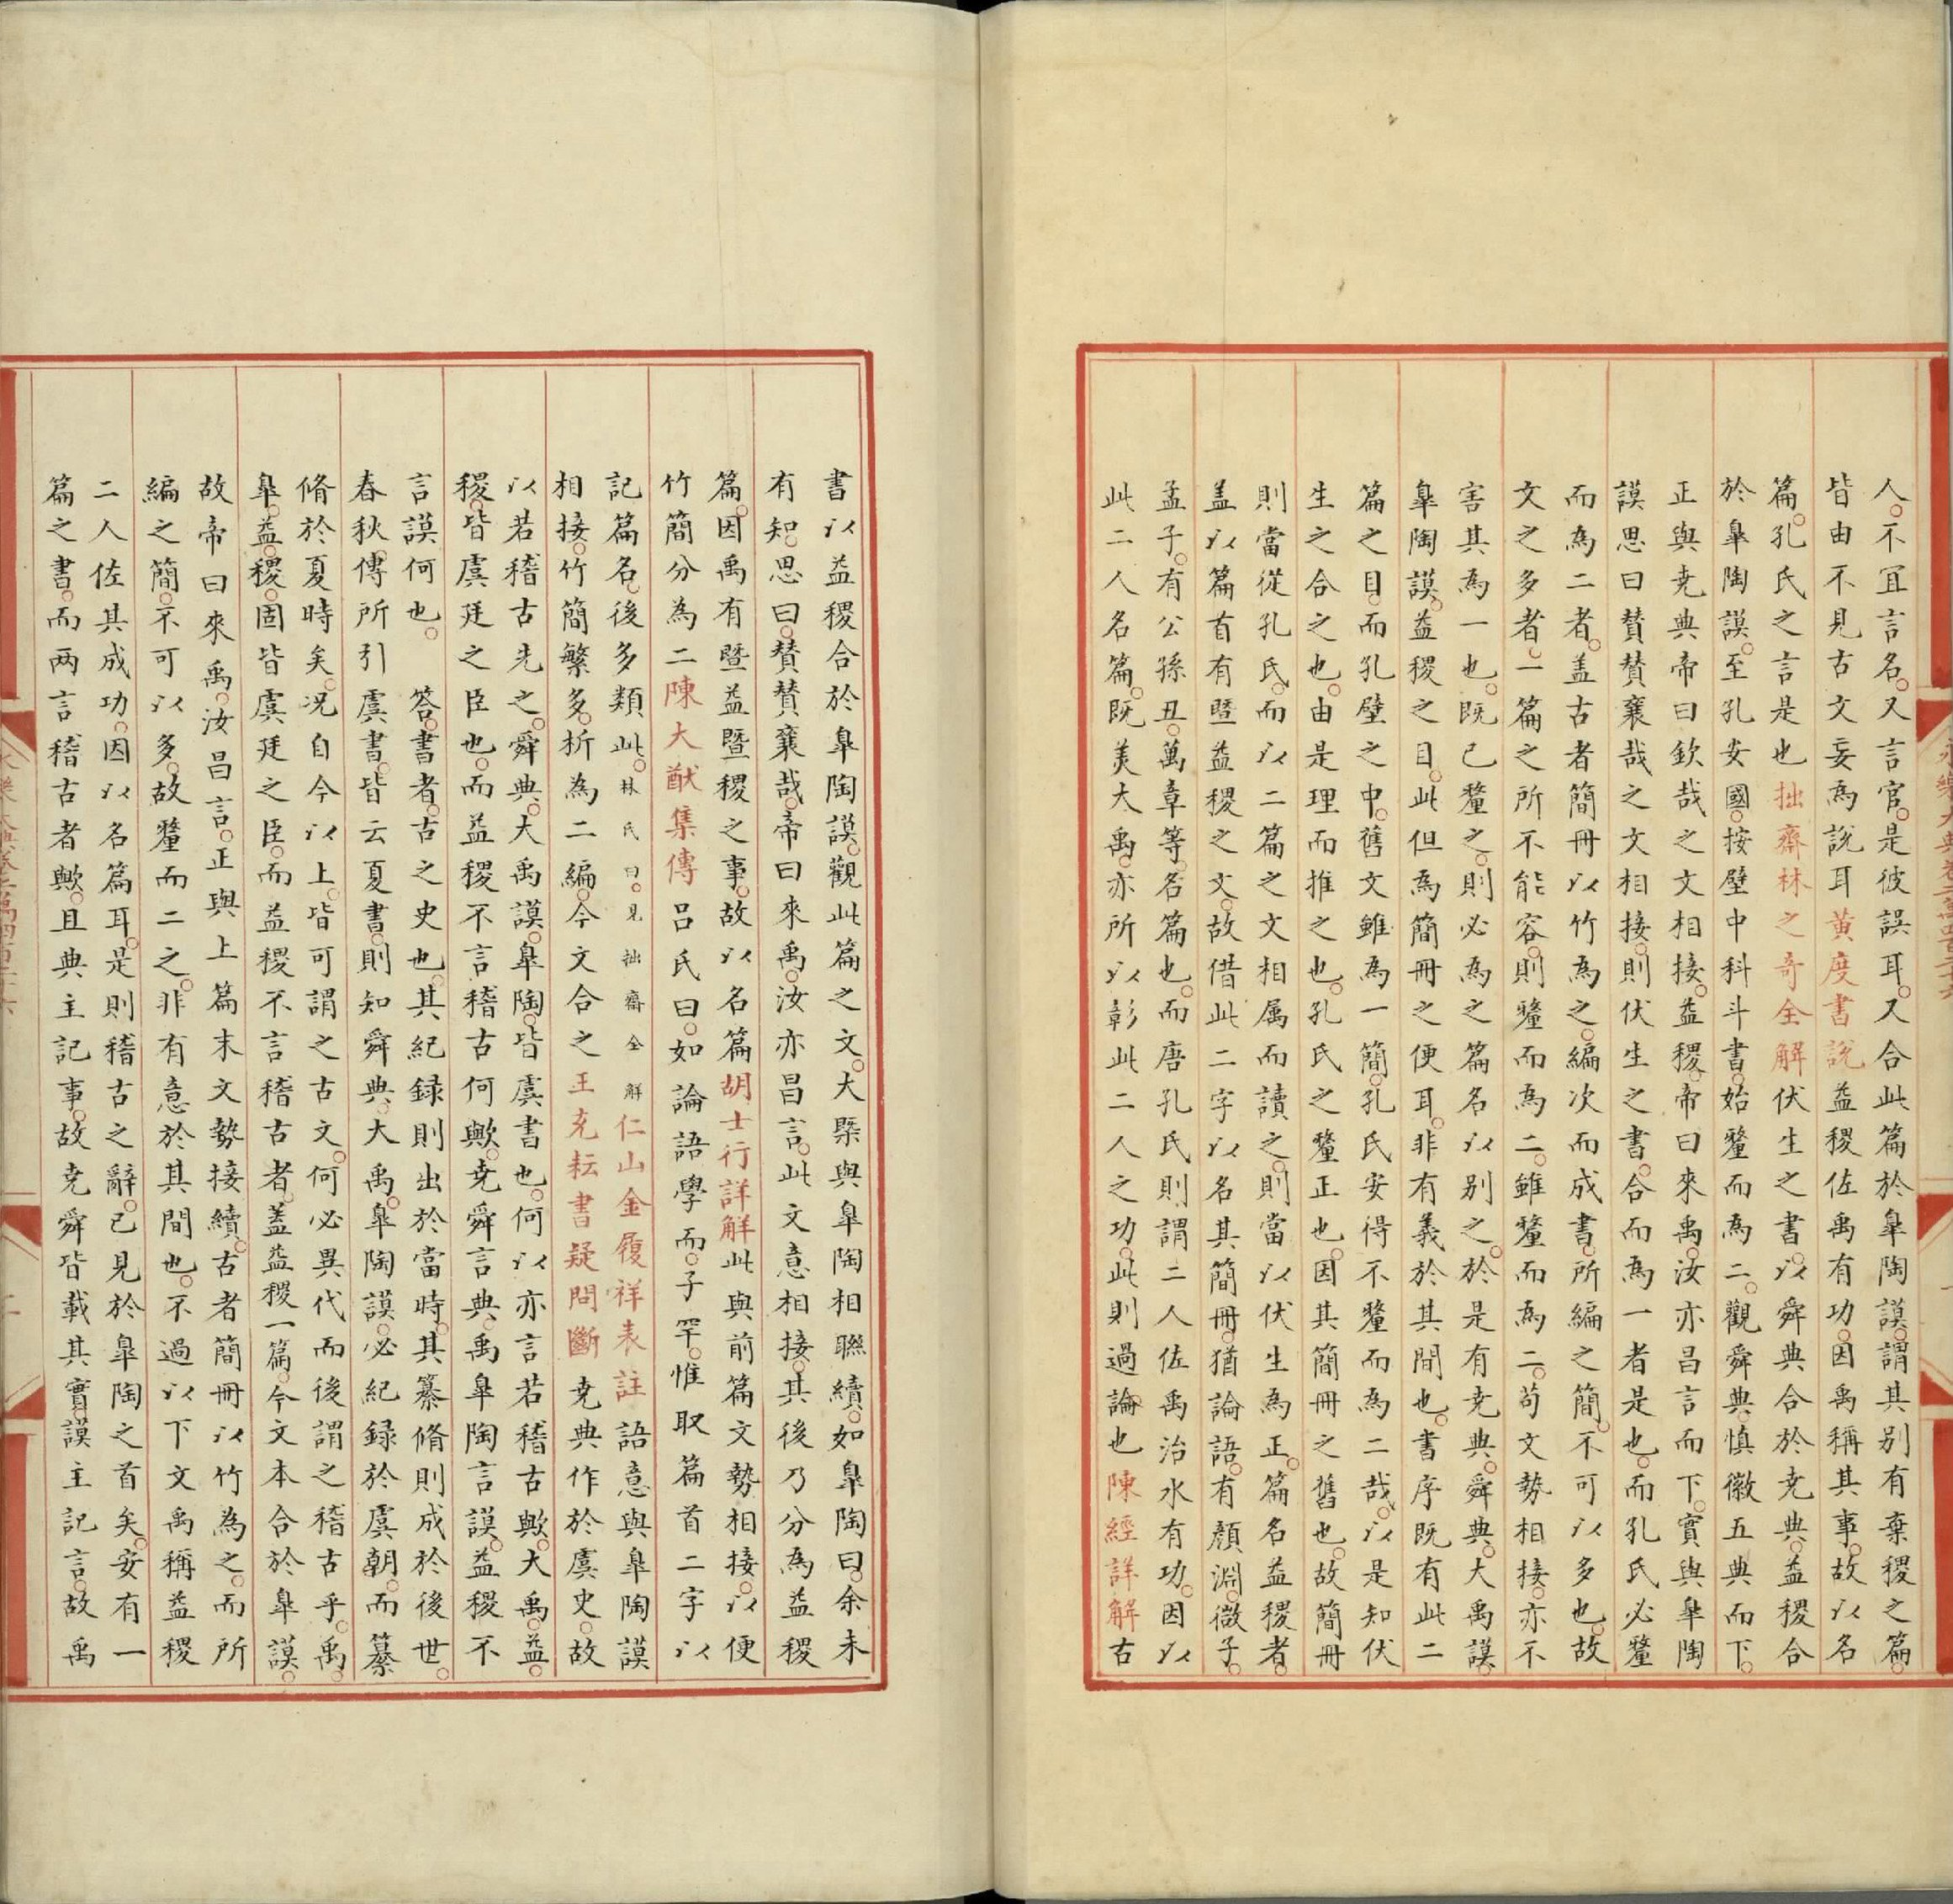 人不冝言名又言官是彼誤耳又合此篇於皐陶謨謂其别有棄稷之篇
皆由不見古文妄為說耳黄度書説益稷佐禹有功因禹稱其事故以名
篇孔氏之言是也拙齋林之奇全解伏生之書以舜典合於尭典益稷合
於皐陶謨至孔安國按壁中科斗書始釐而為二觀舜典慎徽五典而下
正與尭典帝曰欽哉之文相接益稷帝曰來禹汝亦昌言而下實與皐陶
謨思曰賛賛襄哉之文相接則伏生之書合而為一者是也而孔氏必釐
而為二者盖古者簡冊以竹為之編次而成書所編之簡不可以多也故
文之多者一篇之所不能容則釐而為二雖釐而為二苟文勢相接亦不
害其為一也既已釐之則必為之篇名以别之於是有尭典舜典大禹謨
皐陶謨益稷之目此但為簡冊之便耳非有義於其間也書序既有此二
篇之目而孔壁之中舊文雖為一簡孔氏安得不釐而為二哉以是知伏
生之合之也由是理而推之也孔氏之釐正也因其簡冊之舊也故簡冊
則當從孔氏而以二篇之文相属而讀之則當以伏生為正篇名益稷者
盖以篇首有曁益稷之文故借此二字以名其簡冊猶論語有顔淵微子
孟子有公孫丑萬章等名篇也而唐孔氏則謂二人佐禹治水有功因以
此二人名篇既美大禹亦所以彰此二人之功此則過論也陳經詳解古
書以益稷合於皐陶謨觀此篇之文大槩與皐陶相聯續如皐陶曰余未
有知思曰賛賛襄哉帝曰來禹汝亦昌言此文意相接其後乃分為益稷
篇因禹有曁益曁稷之事故以名篇胡士行詳解此與前篇文勢相接以便
竹簡分為二陳大猷集傳吕氏曰如論語學而子罕惟取篇首二字以
記篇名後多類此林氏曰見拙齋全解仁山金履祥表註語意與皐陶謨
相接竹簡繁多析為二編今文合之王充耘書疑問斷尭典作於虞史故
以若稽古先之舜典大禹謨皐陶皆虞書也何以亦言若稽古歟大禹益
稷皆虞廷之臣也而益稷不言稽古何歟尭舜言典禹皐陶言謨益稷不
言謨何也 答書者古之史也其紀録則出於當時其纂脩則成於後世
春秋傳所引虞書皆云夏書則知舜典大禹皐陶謨必紀録於虞朝而纂
脩於夏時矣况自今以上皆可謂之古文何必異代而後謂之稽古乎禹
皐益稷固皆虞廷之臣而益稷不言稽古者盖益稷一篇今文本合於皐謨
故帝曰來禹汝昌言正與上篇末文勢接續古者簡冊以竹為之而所
編之簡不可以多故釐而二之非有意於其間也不過以下文禹稱益稷
二人佐其成功因以名篇耳是則稽古之辭已見於皐陶之首矣安有一
篇之書而两言稽古者歟且典主記事故尭舜皆載其實謨主記言故禹